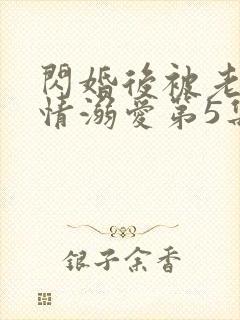 閃婚後被老
情溺愛第5集
銀子余香